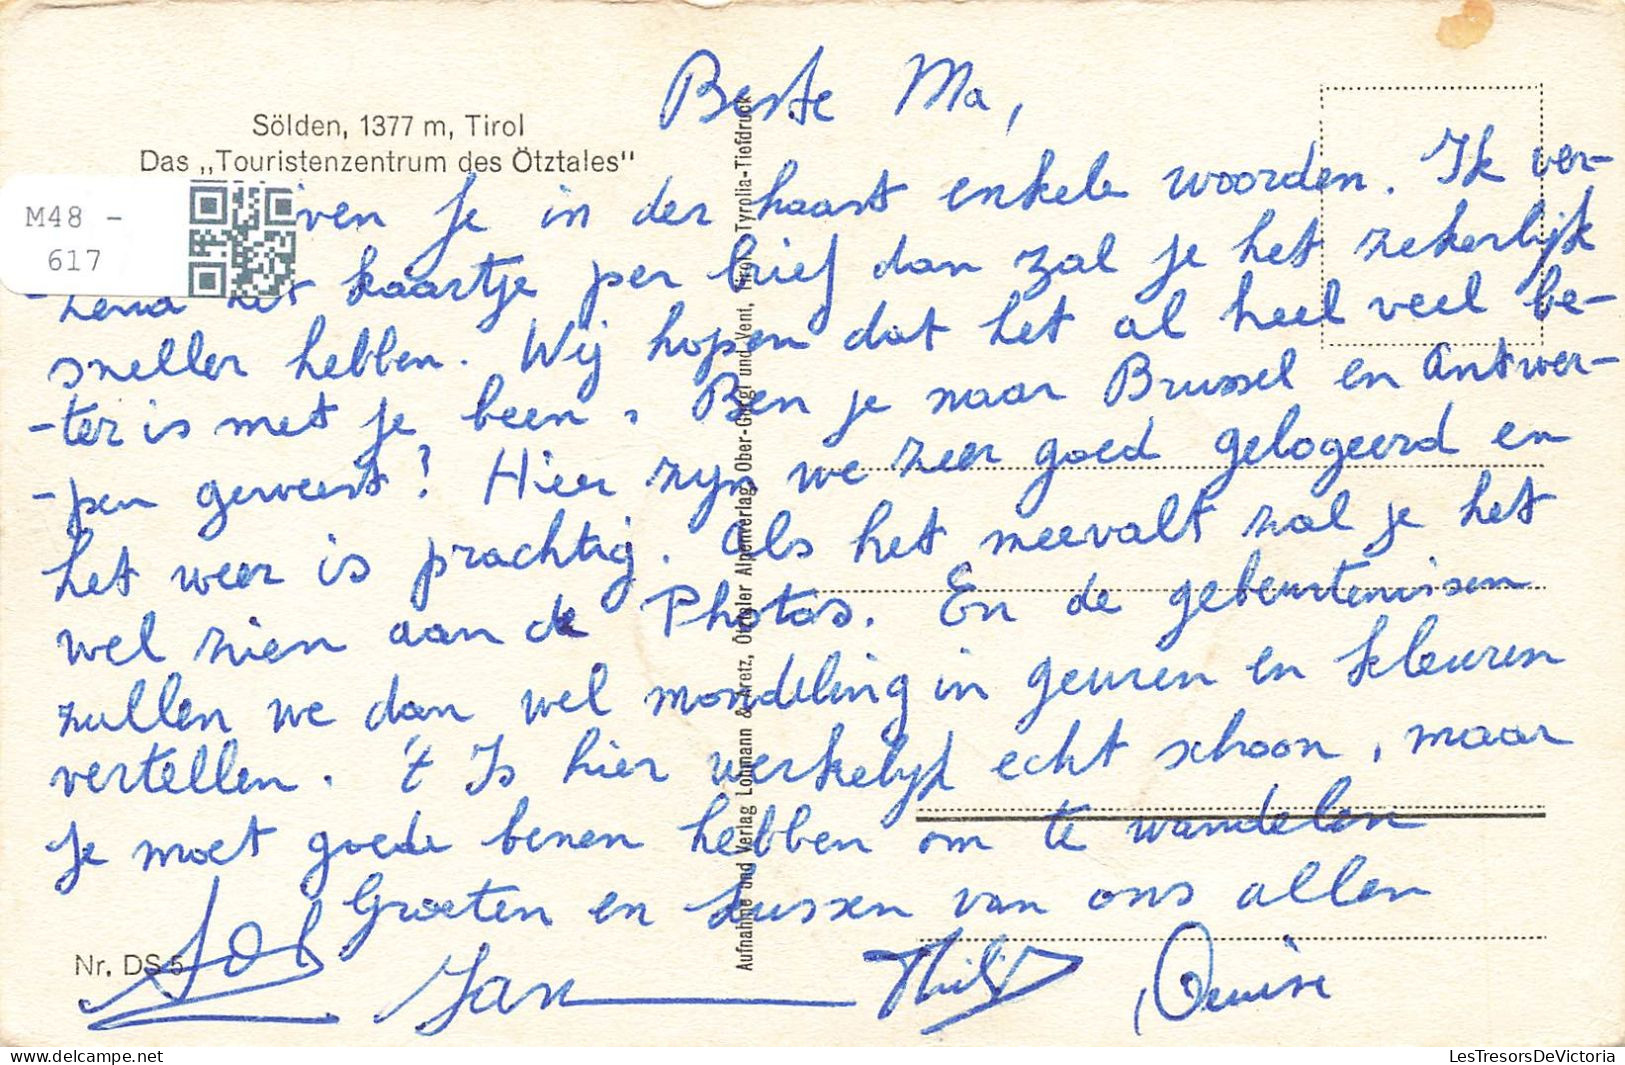 Sölden, 1377 m, Tirol
Das „Touristenzentrum des Ötztales"
M48 -
617
Beste Ma,
je in der haast enkele woorden. Ik ver-
-zend het kaartje per brief dan zal je het zekerlijk
sneller hebben. Wij hopen dat het al heel veel be-
-ter is met je been. Ben je naar Brussel en Antwer-
-pen geweest? Hier zijn we zeer goed gelogeerd en
het weer is prachtig. Als het meevalt zal je het
wel zien aan de Photos. En de gebeurtenissen
zullen we dan wel mondeling in geuren en kleuren
vertellen. 't Is hier werkelijk echt schoon, maar
je moet goede benen hebben om te wandelen
Groeten en kussen van ons allen
Jan
Nr. DS 5
Aufnahme und Verlag Lohmann & Aretz, Ötztaler Alpenverlag, Ober-Gurgl und Vent, Tirol, Tyrolia-Tiefdruck
LesTresorsDeVictoria